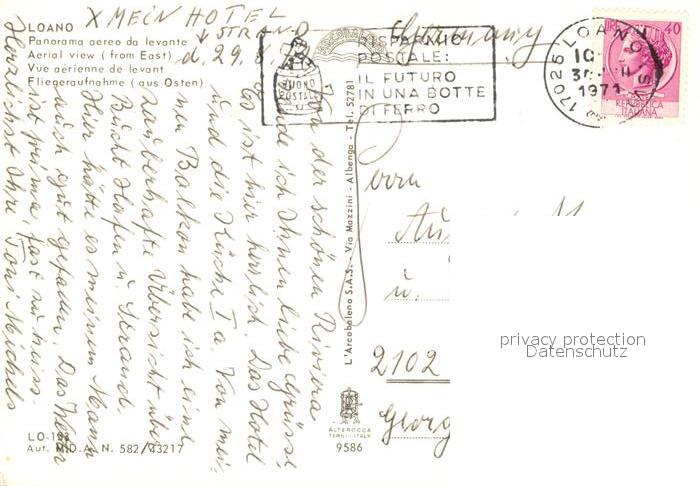 X MEIN HOTEL
↓ STRAND
LOANO
Panorama aereo da levante
Aerial view (from East)
Vue aérienne de levant
Fliegeraufnahme (aus Osten)
d. 29. 8.
Von der schönen Riviera
sende ich Ihnen liebe Grüsse
Es ist hier herrlich. Das Hotel
und die Küche I a. Von mei-
nem Balkon habe ich eine
zauberhafte Übersicht über
Bucht Hafen u. Strand.
Hier hätte es meinem Mann
auch gut gefallen. Das Wetter
ist prima, fast zu heiss.
Herzlichst Ihre Toni Michels
LO-
Aut. N. 582/43217
L'Arcobaleno S.A.S. - Via Mazzini - Albenga - Tel. 52781
ALTEROCCA
TERNI-ITALY
9586
BUONO
POSTALE
RISPARMIO
POSTALE:
IL FUTURO
IN UNA BOTTE
DI FERRO
Germany
17025 LOANO
1971
40
REPUBBLICA
ITALIANA
Herrn
u.
2102
Georg
privacy protection
Datenschutz